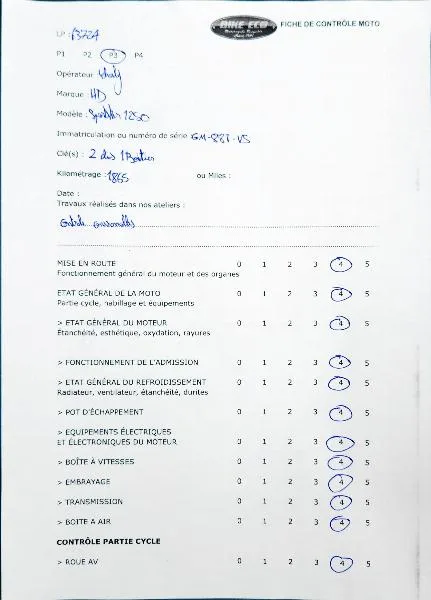 BIKE-ECO
FICHE DE CONTRÔLE MOTO
LP :
P1 P2 P3 P4
Opérateur :
Marque : HD
Modèle : Sportster 1250
Immatriculation ou numéro de série : GM-887-VS
Clé(s) : 2 dés 1 Boitier
Kilométrage : 1865 ou Miles :
Date :
Travaux réalisés dans nos ateliers :
MISE EN ROUTE 0 1 2 3 4 5
Fonctionnement général du moteur et des organes
ETAT GÉNÉRAL DE LA MOTO 0 1 2 3 4 5
Partie cycle, habillage et équipements
> ETAT GÉNÉRAL DU MOTEUR 0 1 2 3 4 5
Etanchéité, esthétique, oxydation, rayures
> FONCTIONNEMENT DE L'ADMISSION 0 1 2 3 4 5
> ETAT GÉNÉRAL DU REFROIDISSEMENT 0 1 2 3 4 5
Radiateur, ventilateur, étanchéité, durites
> POT D'ÉCHAPPEMENT 0 1 2 3 4 5
> EQUIPEMENTS ÉLECTRIQUES
ET ÉLECTRONIQUES DU MOTEUR 0 1 2 3 4 5
> BOÎTE À VITESSES 0 1 2 3 4 5
> EMBRAYAGE 0 1 2 3 4 5
> TRANSMISSION 0 1 2 3 4 5
> BOITE A AIR 0 1 2 3 4 5
CONTRÔLE PARTIE CYCLE
> ROUE AV 0 1 2 3 4 5